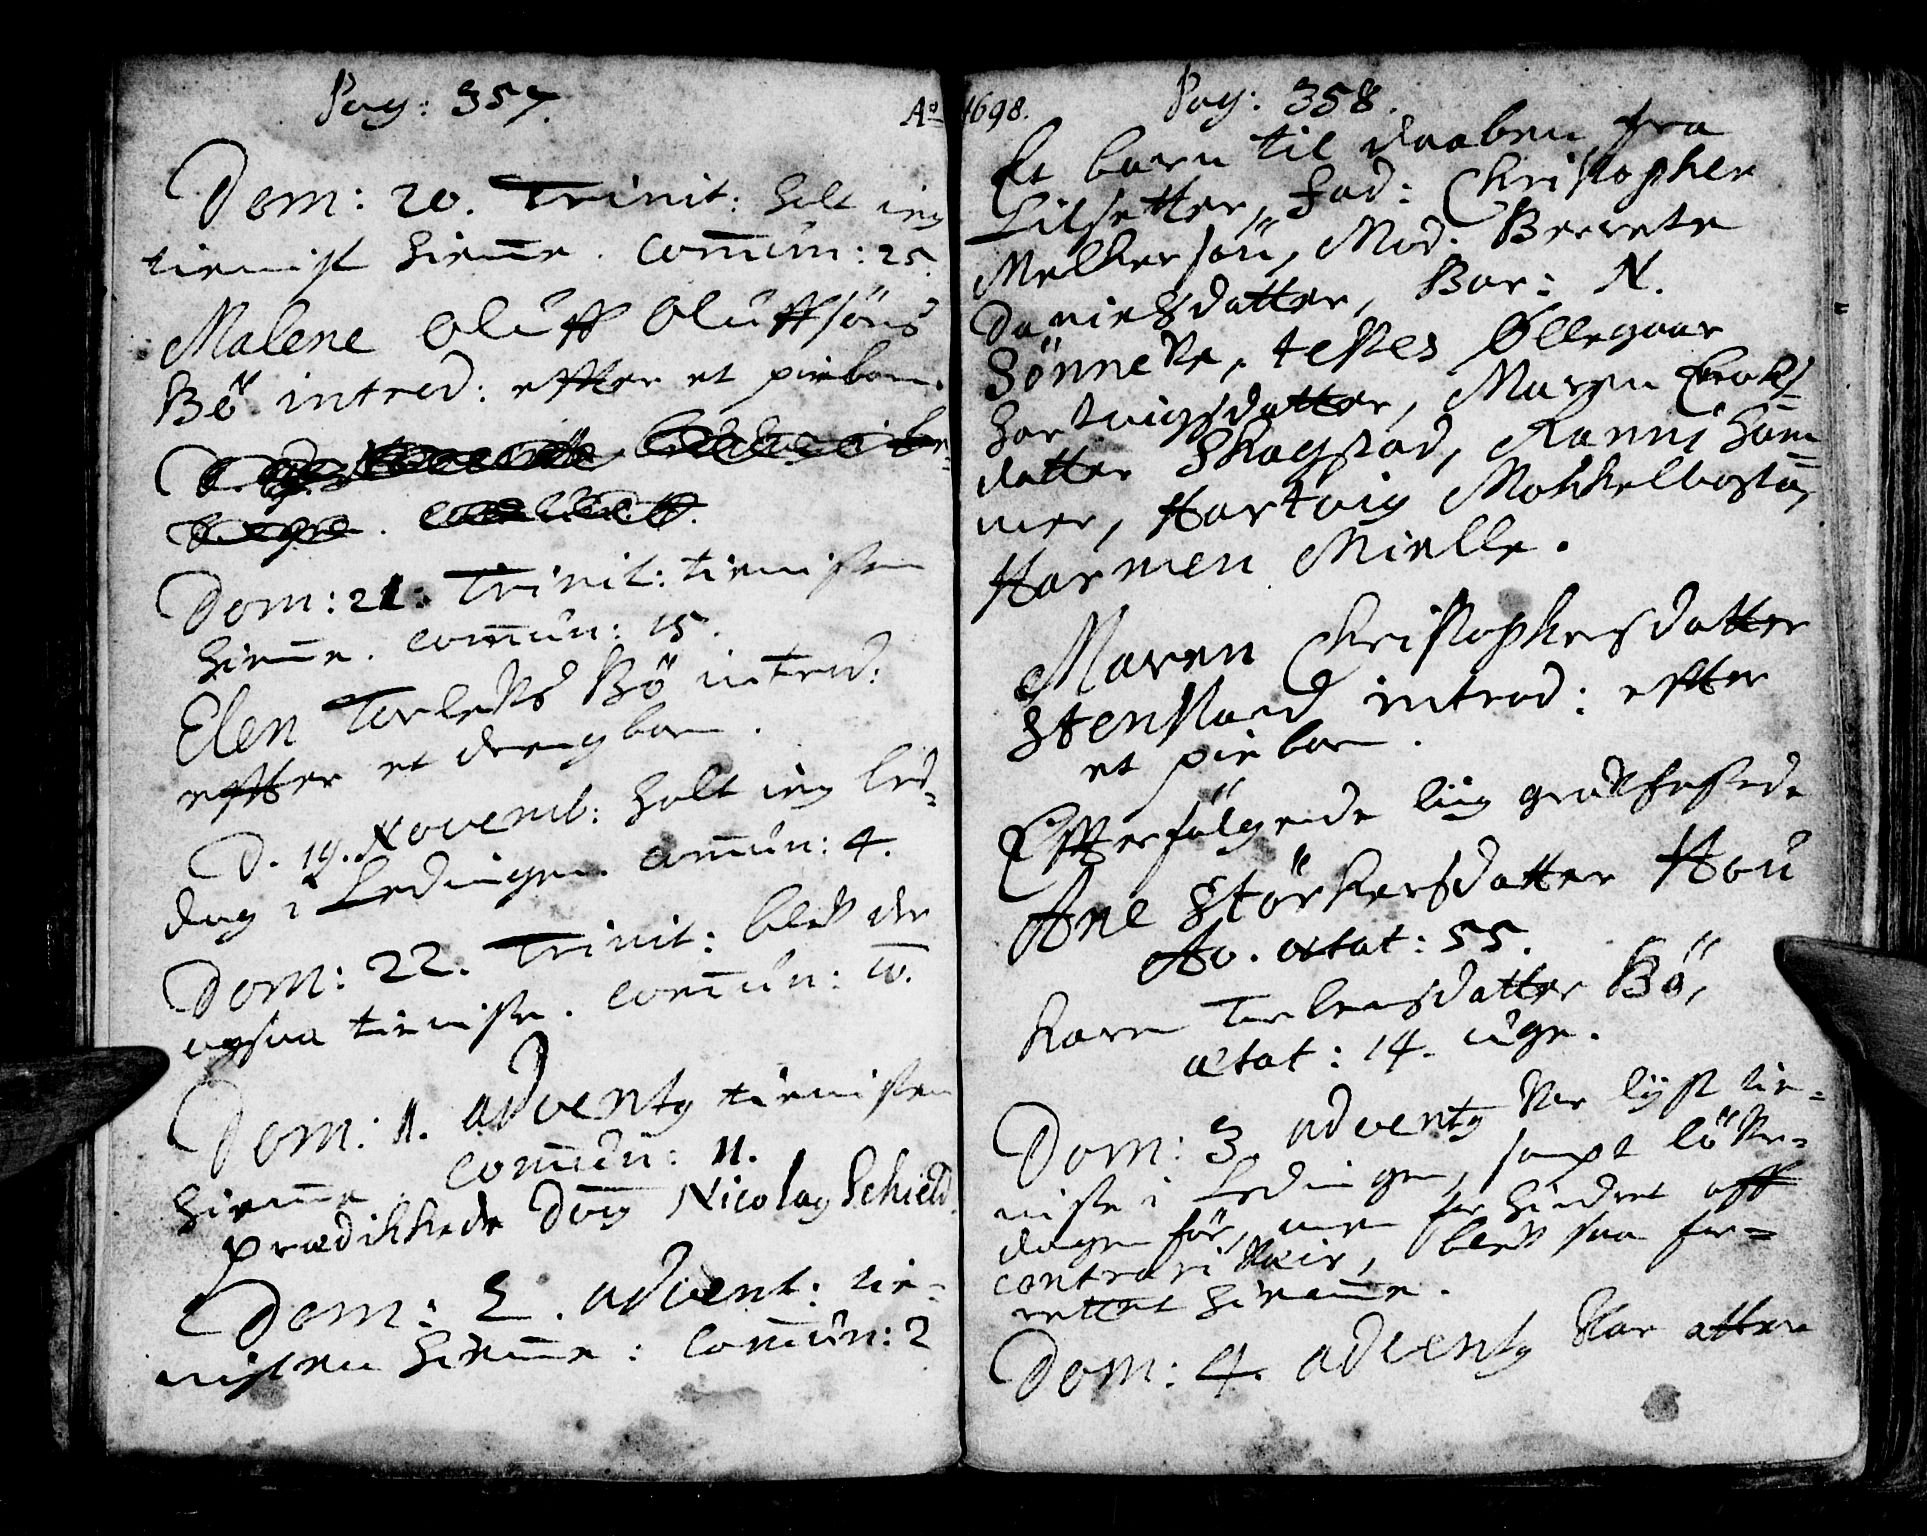 Pag: 357.
Dom: 20. Trinit: holt ieg
tienist hieme. Commun: 25.
Malene Oluff Oluffsöns
Bö introd: effter et piebarn.
Dom: 21. Trinit: tienisten
hieme. Commun: 15.
Elen Torlefs Bö introd:
effter et drengbarn.
D. 19. Novemb: holt ieg bed-
dag i Lødingen. Commun: 4.
Dom: 22. Trinit: blef der
ogsaa tieniste. Commun: 10.
Dom: 1. advents tienisten
hieme. Commun: 11.
prædikkede Don Nicolay Schield.
Dom: 2. advent: tie-
nisten hieme: Commun: 2
Ao 1698.
Pag: 358.
Et barn til daaben fra
Lilsetter, Fad: Christopher
Melkersön, Mod: Berrete
Danielsdatter, Bar: N.
Sönneke, testes Ollegaar
Hartvigsdatter, Maren Eriks-
datter Skagstad, Ranni Ham-
mer, Hartvig Mokkelbostad,
Harmen Mielle.
Maren Christophersdatter
Stenstand introd: effter
et pie barn.
Effterfölgende liig grafsfestede
Ane Störkersdatter Hou
Ao. ætat: 55.
Karen Torlensdatter Bö,
ætat: 14. uge.
Dom: 3 advents var lyst tie-
niste i Lødingen, sampt löffve-
dagen för, men forhindret aff
contrari veir, blef saa for-
rettet hieme.
Dom: 4. advents var atter